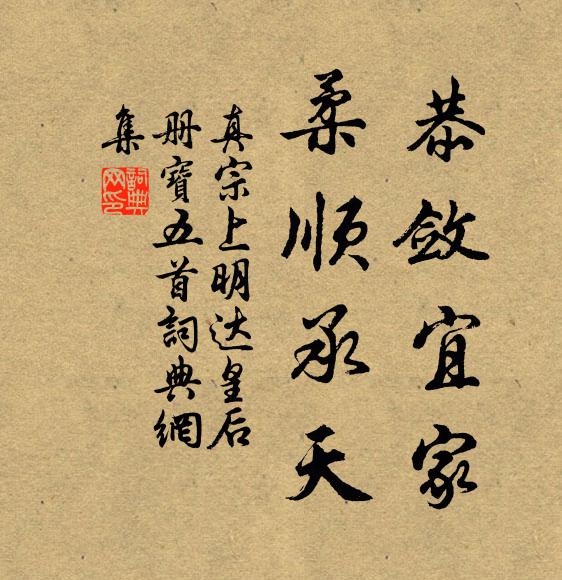 恭斂宜家
柔順承天
真宗上明达皇后
册寶五首詞典網
集
詞典
网印